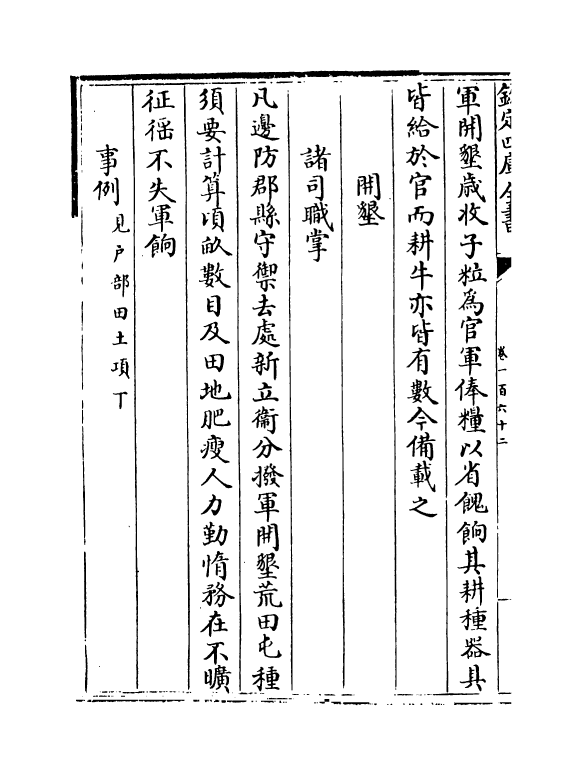 欽定四庫全書
卷一百六十二
軍開墾歲收子粒為官軍俸糧以省餽餉其耕種器具
皆給於官而耕牛亦皆有數今備載之
開墾
諸司職掌
凡邊防郡縣守禦去處新立衞分撥軍開墾荒田屯種
須要計算頃畝數目及田地肥瘦人力勤惰務在不曠
征徭不失軍餉
事例見戶部田土項下